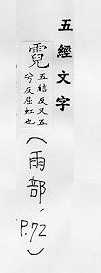 五經文字
霓
五反又五
兮反屈虹也
(雨部, P.72)